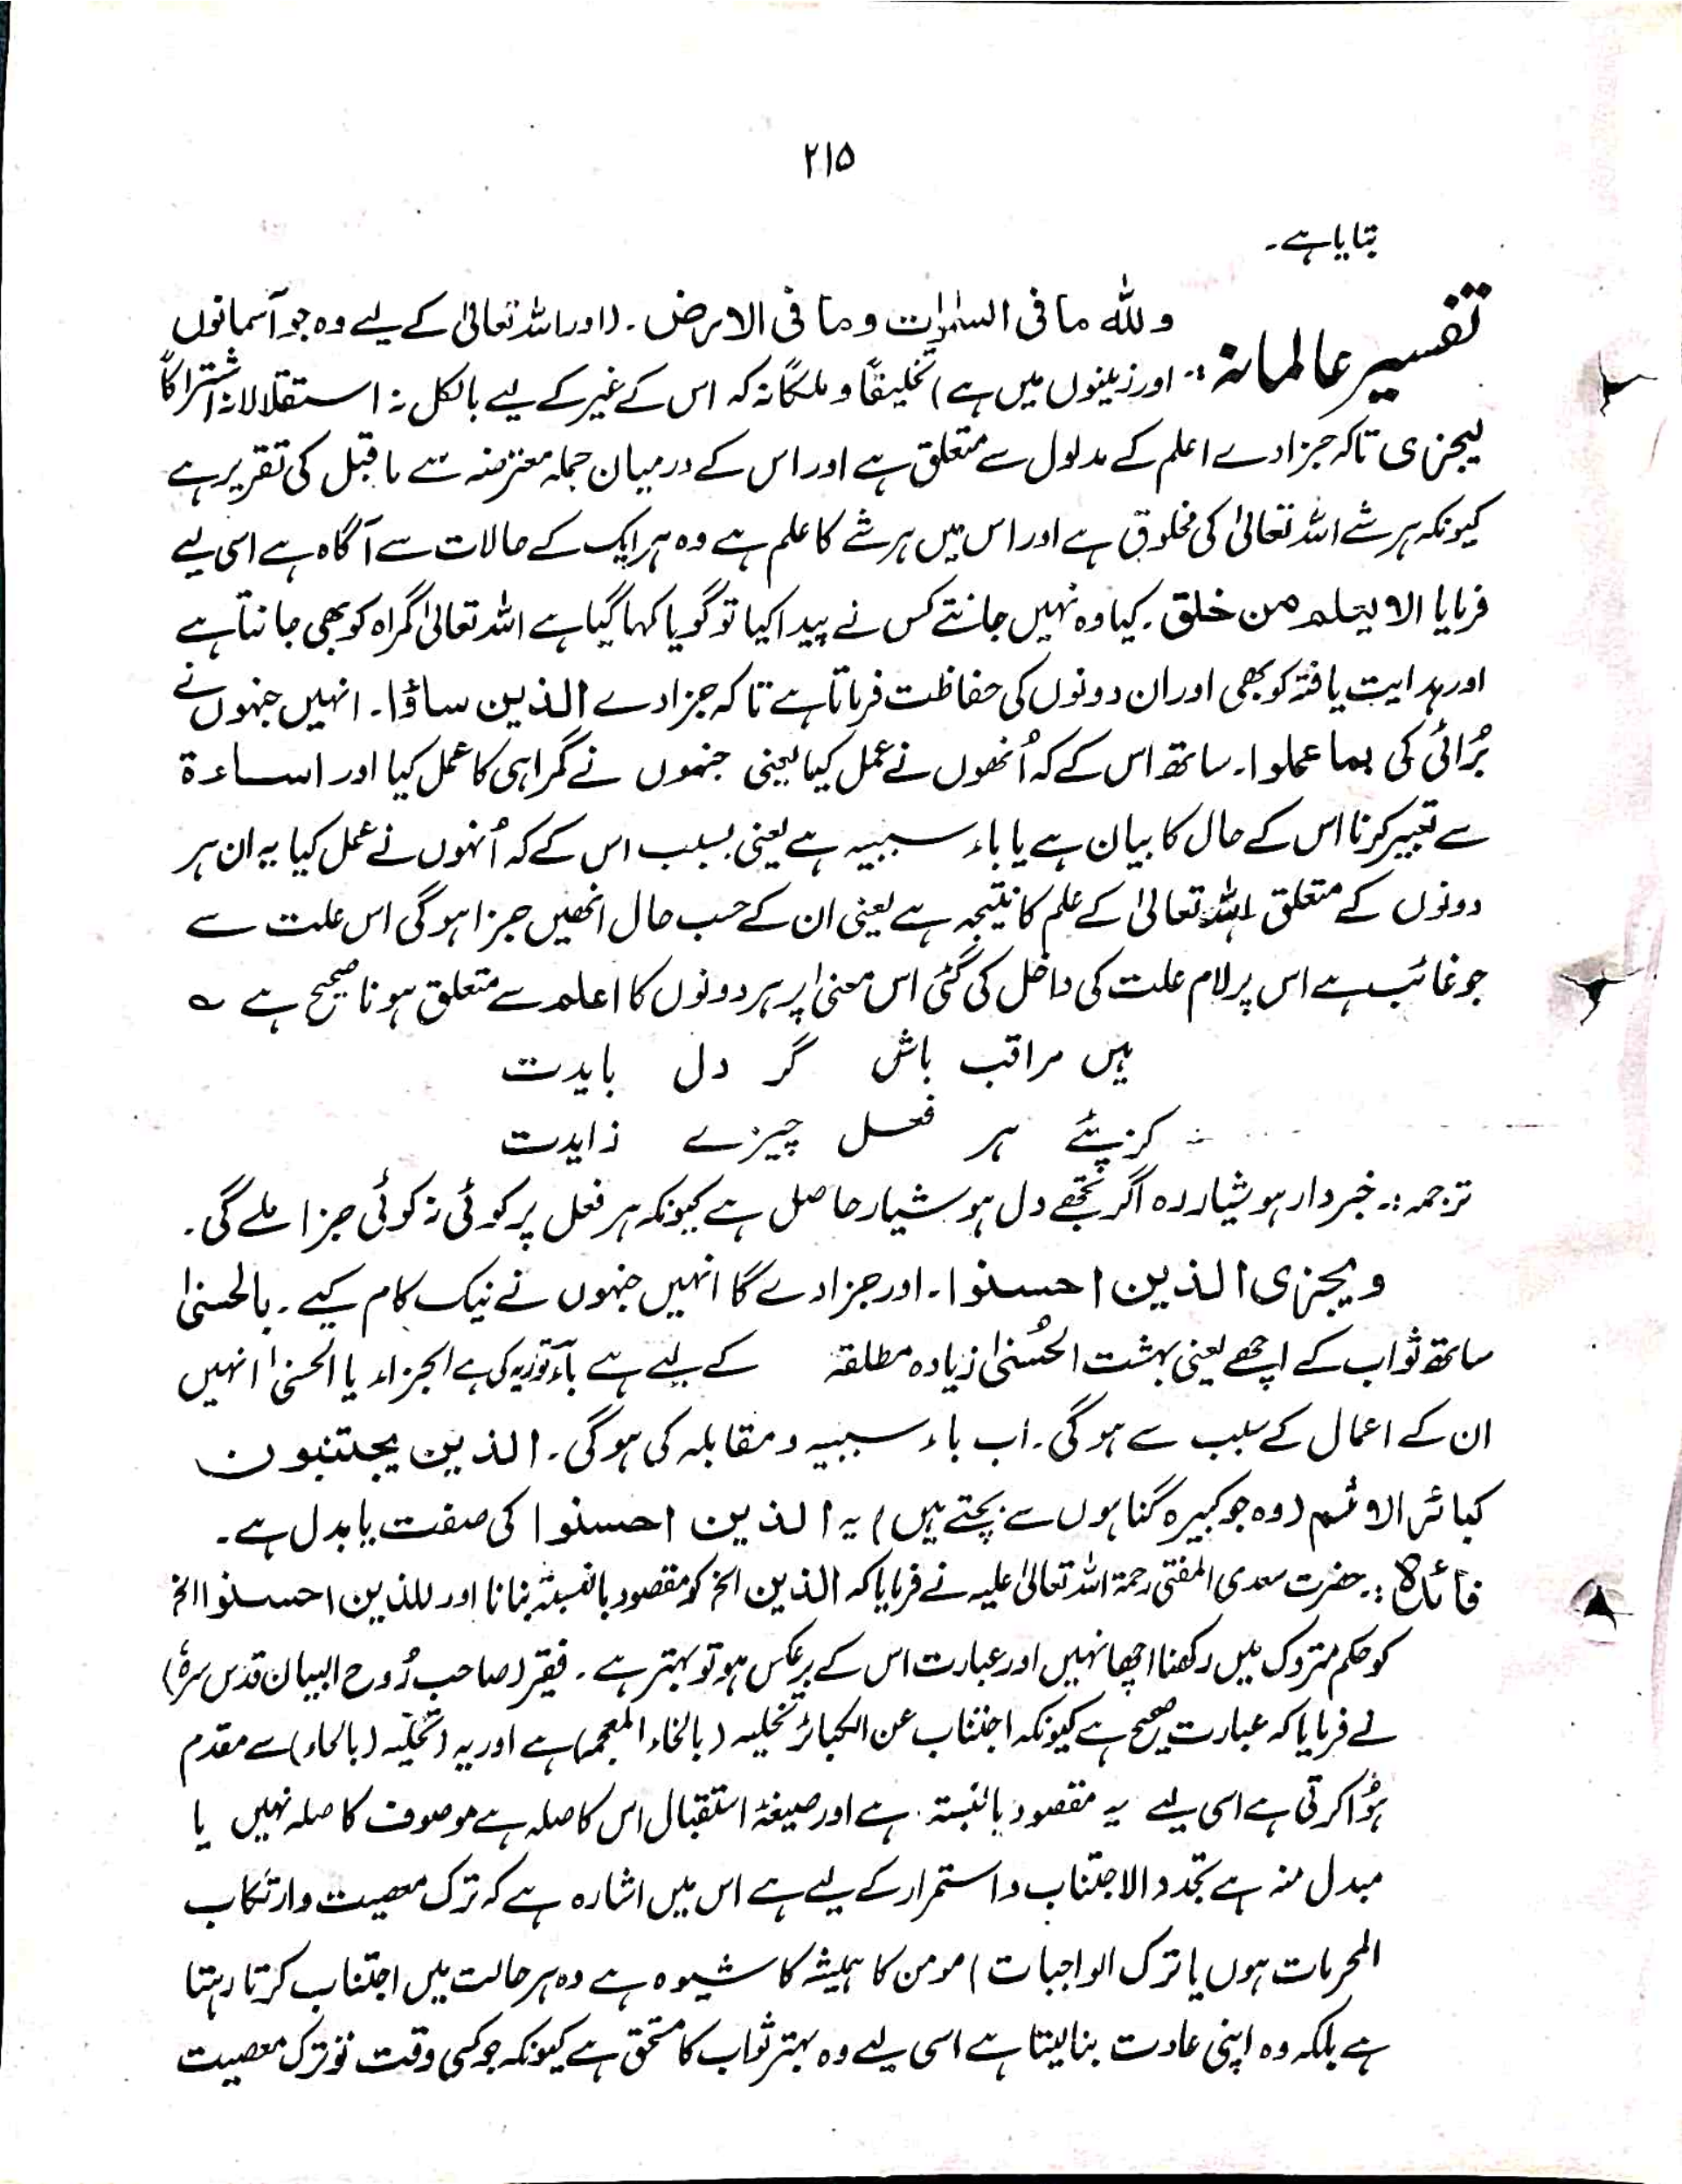 ۲۱۵
بتایا ہے۔
تفسیر عالمانہ :۔ وللہ ما فی السمٰوٰت وما فی الارض۔ (اور اللہ تعالیٰ کے لیے وہ جو آسمانوں
اور زمینوں میں ہے) تخلیقاً و ملکاً نہ کہ اس کے غیر کے لیے بالکل نہ استقلالا نہ اشتراکاً
لیجزی تاکہ جزا دے اعلم کے مدلول سے متعلق ہے اور اس کے درمیان جملہ معترضہ سے ماقبل کی تقریر ہے
کیونکہ ہر شے اللہ تعالیٰ کی مخلوق ہے اور اس میں ہر شے کا علم ہے وہ ہر ایک کے حالات سے آگاہ ہے اسی لیے
فرمایا الا یعلم من خلق۔ کیا وہ نہیں جانتے کس نے پیدا کیا تو گویا کہا گیا ہے اللہ تعالیٰ گمراہ کو بھی جانتا ہے
اور ہدایت یافتہ کو بھی اور ان دونوں کی حفاظت فرماتا ہے تاکہ جزا دے الذین ساؤا۔ انہیں جنہوں نے
بُرائی کی بما عملوا۔ ساتھ اس کے کہ اُنھوں نے عمل کیا یعنی جنہوں نے گمراہی کا عمل کیا اور اساءۃ
سے تعبیر کرنا اس کے حال کا بیان ہے یا باء سببیہ ہے یعنی بسبب اس کے کہ اُنہوں نے عمل کیا یہ ان ہر
دونوں کے متعلق اللہ تعالیٰ کے علم کا نتیجہ ہے یعنی ان کے حسب حال انھیں جزا ہوگی اس علت سے
جو غائب ہے اس پر لام علت کی داخل کی گئی اس معنیٰ پر ہر دونوں کا اعلم سے متعلق ہونا صحیح ہے ؎
ہیں مراقب باش گر دل بایدت
کز پئے ہر فعل چیزے زایدت
ترجمہ :۔ خبردار ہوشیار رہ اگر تجھے دل ہوشیار حاصل ہے کیونکہ ہر فعل پر کوئی نہ کوئی جزا ملے گی۔
ویجزی الذین احسنوا۔ اور جزا دے گا انہیں جنہوں نے نیک کام کیے۔ بالحسنیٰ
ساتھ ثواب کے اچھے یعنی بہشت الحُسنیٰ زیادہ مطلقہ کے لیے ہے باء تویہ کی ہے الجزاء یا الحسنیٰ انہیں
ان کے اعمال کے سبب سے ہوگی۔ اب باء سببیہ و مقابلہ کی ہوگی۔ الذین یجتنبون
کبائر الاثم (وہ جو کبیرہ گناہوں سے بچتے ہیں) یہ الذین احسنوا کی صفت یا بدل ہے۔
فائدہ :۔ حضرت سعدی المفتی رحمۃ اللہ تعالیٰ علیہ نے فرمایا کہ الذین الخ کو مقصود بالنسبۃ بنانا اور للذین احسنوا الخ
کو حکم متروک میں رکھنا اچھا نہیں اور عبارت اس کے برعکس ہو تو بہتر ہے۔ فقیر (صاحب رُوح البیان قدس سرہٗ)
نے فرمایا کہ عبارت صحیح ہے کیونکہ اجتناب عن الکبائر تخلیہ (بالخاء المعجمہ) ہے اور یہ (تحلیہ (بالحاء) سے مقدم
ہُوا کرتی ہے اسی لیے یہ مقصود بالنسبۃ ہے اور صیغۂ استقبال اس کا صلہ ہے موصوف کا صلہ نہیں یا
مبدل منہ ہے تجدد الاجتناب و استمرار کے لیے ہے اس میں اشارہ ہے کہ ترک معصیت وارتکاب
المحرمات ہوں یا ترک الواجبات) مومن کا ہمیشہ کا شیوہ ہے وہ ہر حالت میں اجتناب کرتا رہتا
ہے بلکہ وہ اپنی عادت بنا لیتا ہے اسی لیے وہ بہتر ثواب کا مستحق ہے کیونکہ جو کسی وقت تو ترک معصیت